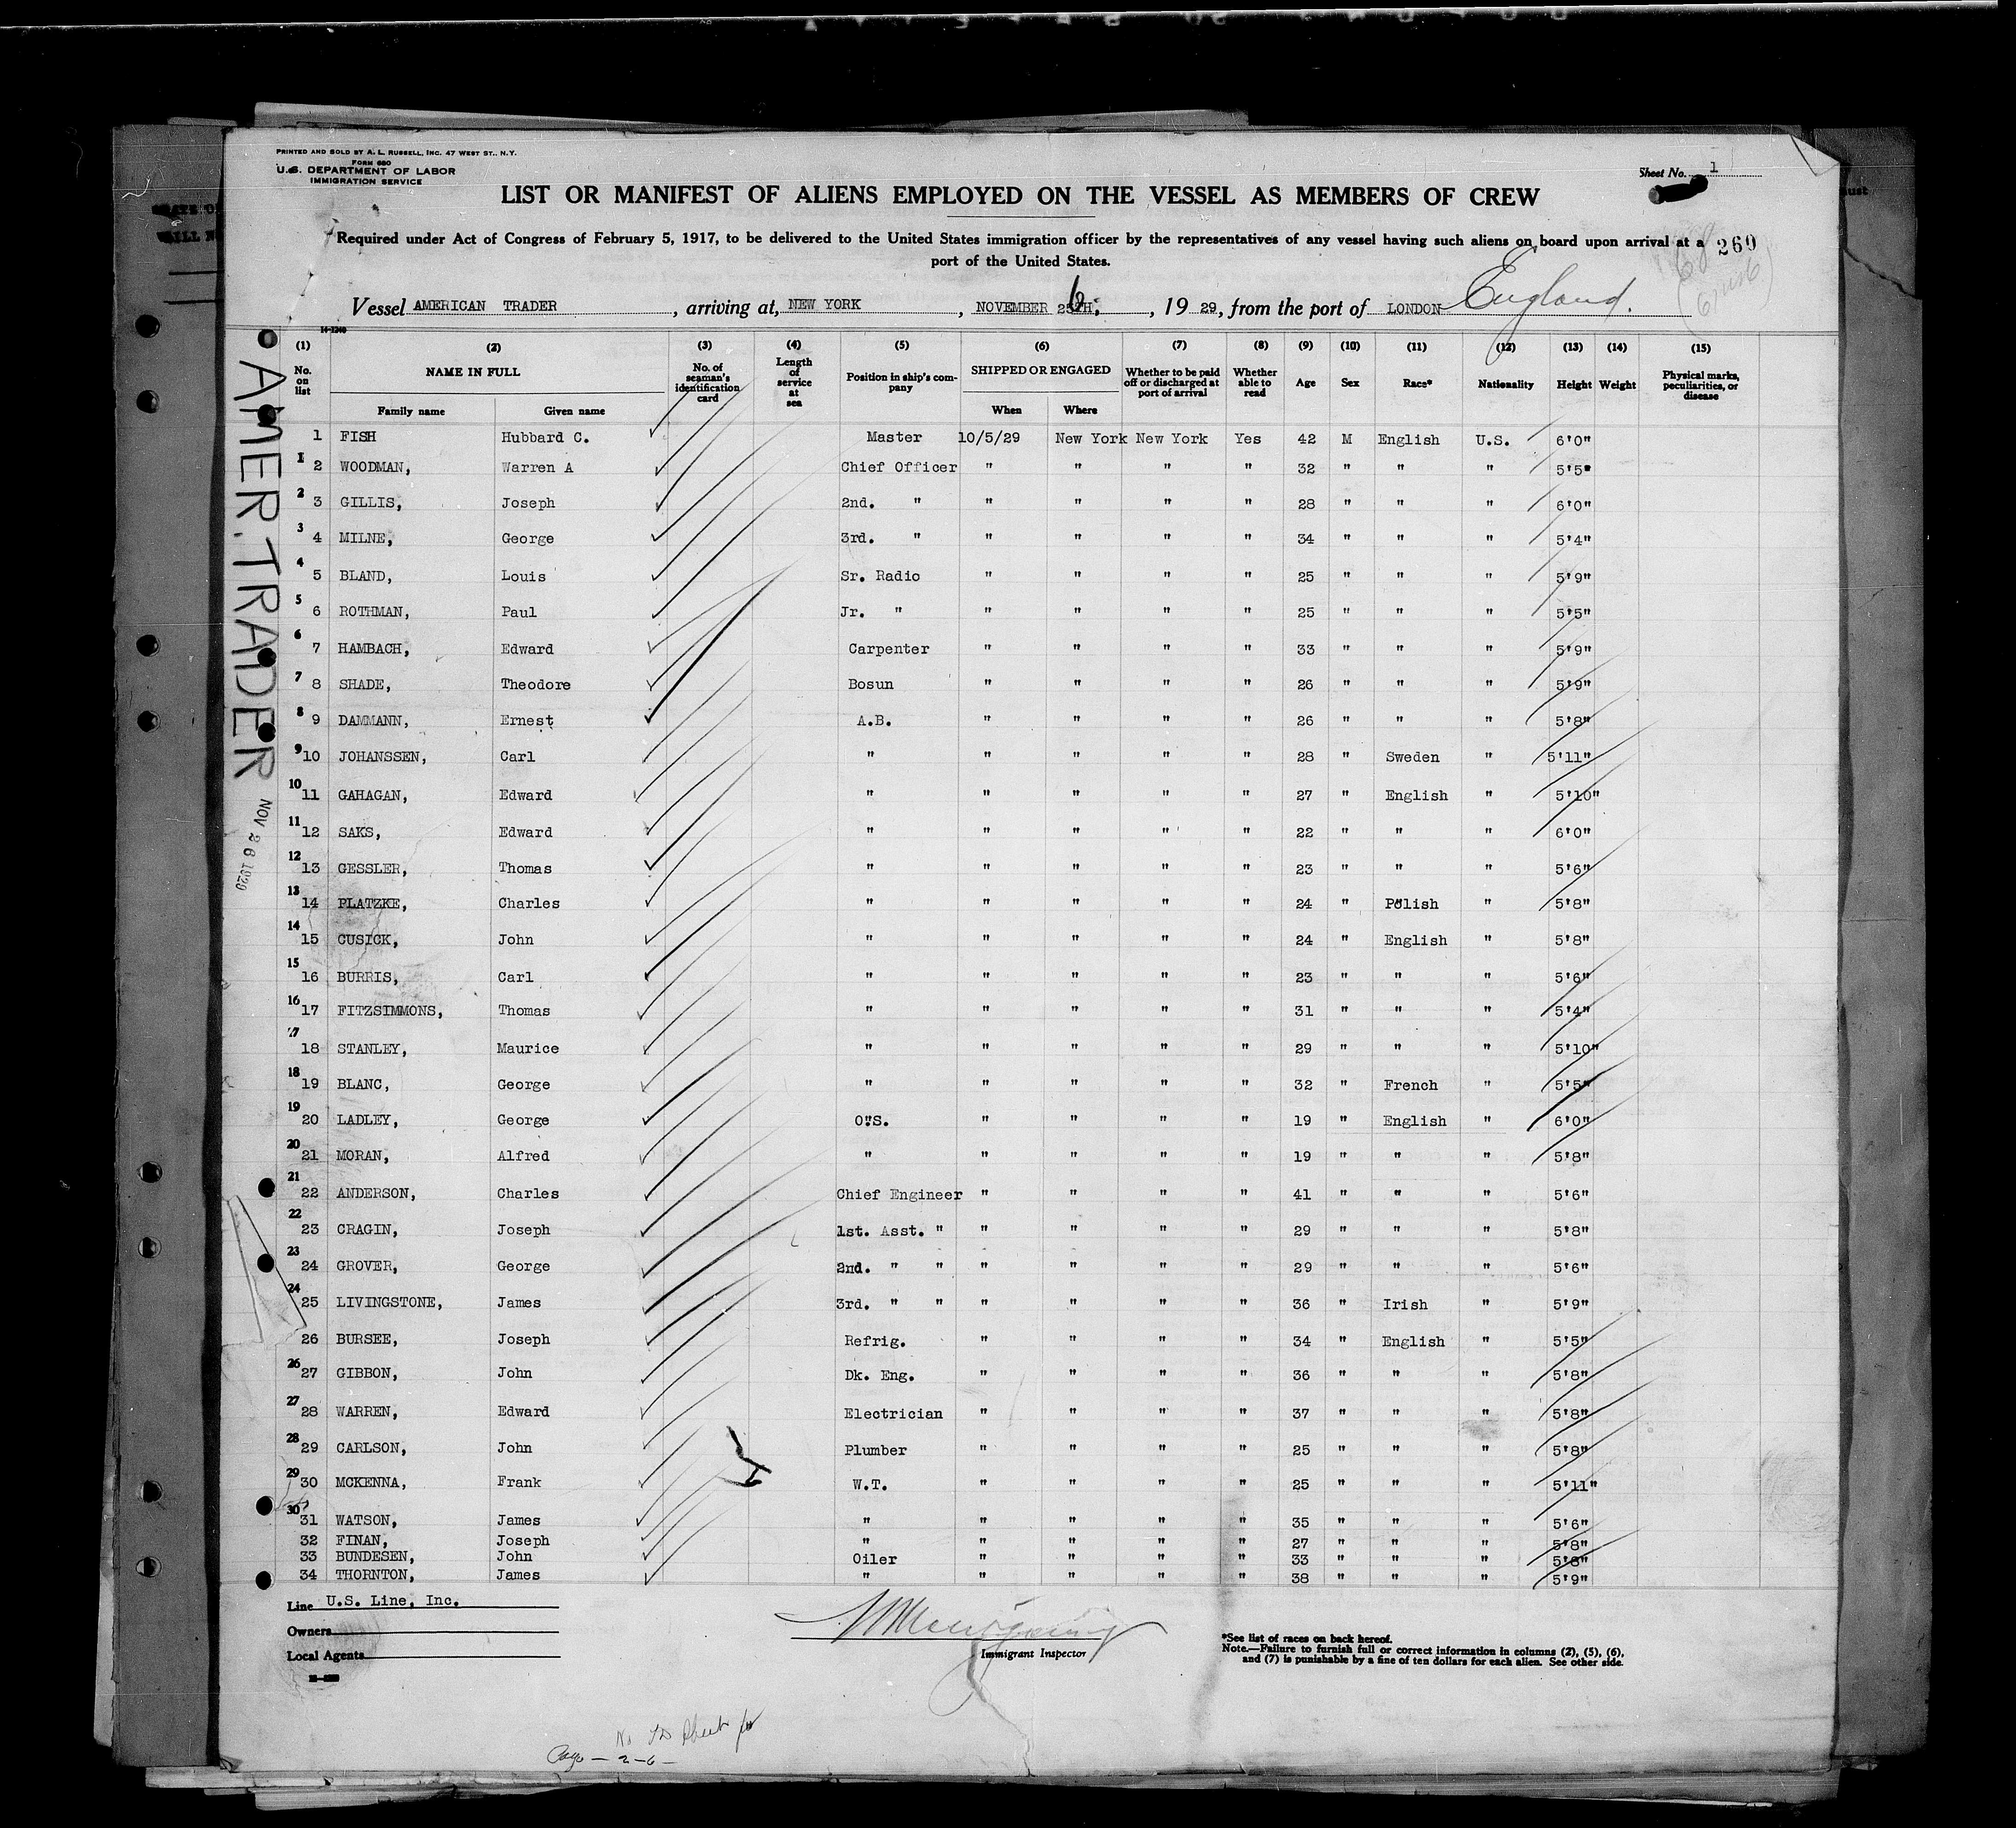 PRINTED AND SOLD BY A. L. RUSSELL, INC. 47 WEST ST., N.Y.
FORM 680
U.S. DEPARTMENT OF LABOR
IMMIGRATION SERVICE
Sheet No. 1
LIST OR MANIFEST OF ALIENS EMPLOYED ON THE VESSEL AS MEMBERS OF CREW
Required under Act of Congress of February 5, 1917, to be delivered to the United States immigration officer by the representatives of any vessel having such aliens on board upon arrival at a
port of the United States.
260
Vessel AMERICAN TRADER, arriving at, NEW YORK, NOVEMBER 26TH, 1929, from the port of LONDON England.
14-1240
(1) (2) (3) (4) (5) (6) (7) (8) (9) (10) (11) (12) (13) (14) (15)
No. on list NAME IN FULL No. of seaman's identification card Length of service at sea Position in ship's company SHIPPED OR ENGAGED Whether to be paid off or discharged at port of arrival Whether able to read Age Sex Race* Nationality Height Weight Physical marks, peculiarities, or disease
Family name Given name When Where
1 FISH Hubbard C. Master 10/5/29 New York New York Yes 42 M English U.S. 6'0"
1 2 WOODMAN, Warren A Chief Officer " " " " 32 " " " 5'5"
2 3 GILLIS, Joseph 2nd. " " " " " 28 " " " 6'0"
3 4 MILNE, George 3rd. " " " " " 34 " " " 5'4"
4 5 BLAND, Louis Sr. Radio " " " " 25 " " " 5'9"
5 6 ROTHMAN, Paul Jr. " " " " " 25 " " " 5'5"
6 7 HAMBACH, Edward Carpenter " " " " 33 " " " 5'9"
7 8 SHADE, Theodore Bosun " " " " 26 " " " 5'9"
8 9 DAMMANN, Ernest A.B. " " " " 26 " " " 5'8"
9 10 JOHANSSEN, Carl " " " " " 28 " Sweden " 5'11"
10 11 GAHAGAN, Edward " " " " " 27 " English " 5'10"
11 12 SAKS, Edward " " " " " 22 " " " 6'0"
12 13 GESSLER, Thomas " " " " " 23 " " " 5'6"
13 14 PLATZKE, Charles " " " " " 24 " Polish " 5'8"
14 15 CUSICK, John " " " " " 24 " English " 5'8"
15 16 BURRIS, Carl " " " " " 23 " " " 5'6"
16 17 FITZSIMMONS, Thomas " " " " " 31 " " " 5'4"
17 18 STANLEY, Maurice " " " " " 29 " " " 5'10"
18 19 BLANC, George " " " " " 32 " French " 5'5"
19 20 LADLEY, George O.S. " " " " 19 " English " 6'0"
20 21 MORAN, Alfred " " " " " 19 " " " 5'8"
21 22 ANDERSON, Charles Chief Engineer " " " " 41 " " " 5'6"
22 23 CRAGIN, Joseph 1st. Asst. " " " " " 29 " " " 5'8"
23 24 GROVER, George 2nd. " " " " " " 29 " " " 5'6"
24 25 LIVINGSTONE, James 3rd. " " " " " " 36 " Irish " 5'9"
26 BURSEE, Joseph Refrig. " " " " 34 " English " 5'5"
26 27 GIBBON, John Dk. Eng. " " " " 36 " " " 5'8"
27 28 WARREN, Edward Electrician " " " " 37 " " " 5'8"
28 29 CARLSON, John Plumber " " " " 25 " " " 5'8"
29 30 MCKENNA, Frank W.T. " " " " 25 " " " 5'11"
30 31 WATSON, James " " " " " 35 " " " 5'6"
32 FINAN, Joseph " " " " " 27 " " " 5'8"
33 BUNDESEN, John Oiler " " " " 33 " " " 5'8"
34 THORNTON, James " " " " " 38 " " " 5'9"
AMER. TRADER
NOV 26 1929
Line U.S. Line, Inc.
Owners
Local Agents
Immigrant Inspector
*See list of races on back hereof.
Note.—Failure to furnish full or correct information in columns (2), (5), (6),
and (7) is punishable by a fine of ten dollars for each alien. See other side.
Page — 2-6 —